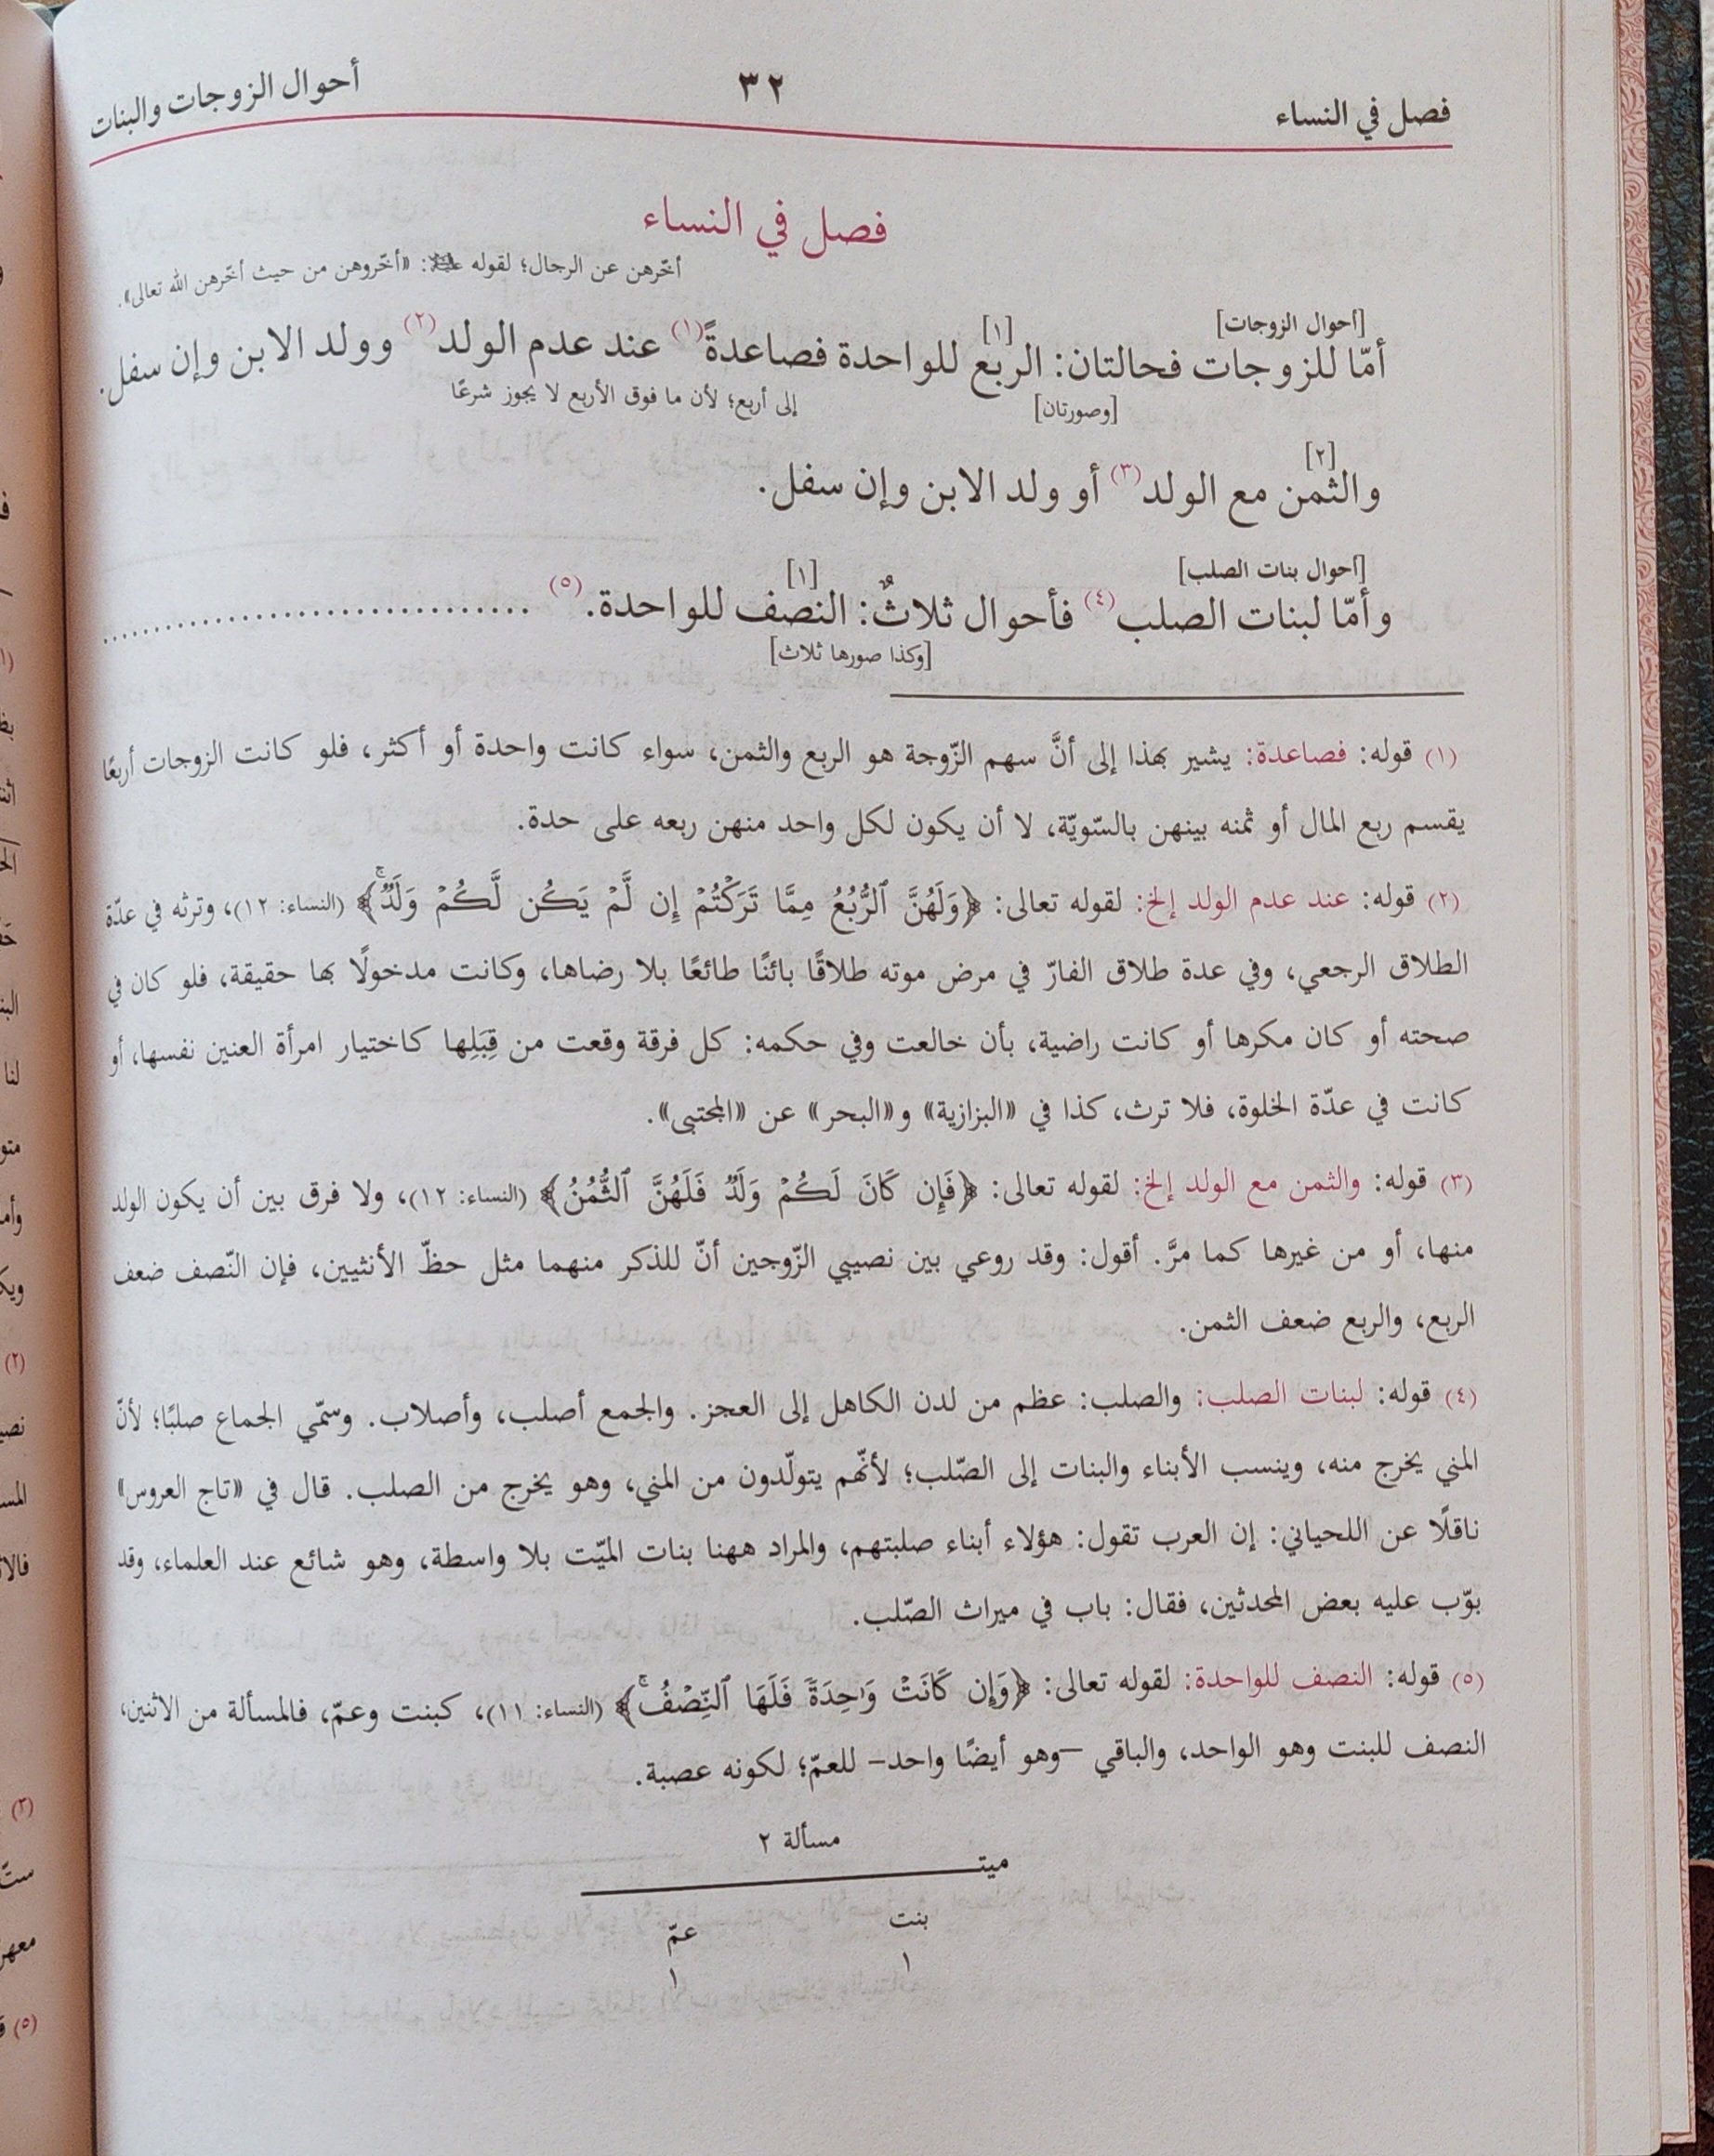 فصل في النساء ٣٢ أحوال الزوجات والبنات
فصل في النساء
أخّرهن عن الرجال؛ لقوله ﷺ: «أخّروهن من حيث أخّرهن الله تعالى».
[أحوال الزوجات] [١]
أمّا للزوجات فحالتان: الربع للواحدة فصاعدةً(١) عند عدم الولد(٢) وولد الابن وإن سفل.
[وصورتان] إلى أربع؛ لأن ما فوق الأربع لا يجوز شرعًا
[٢]
والثمن مع الولد(٣) أو ولد الابن وإن سفل.
[أحوال بنات الصلب] [١]
وأمّا لبنات الصلب(٤) فأحوال ثلاثٌ: النصف للواحدة.(٥) ..................................
[وكذا صورها ثلاث]
(١) قوله: فصاعدة: يشير بهذا إلى أنَّ سهم الزّوجة هو الربع والثمن، سواء كانت واحدة أو أكثر، فلو كانت الزوجات أربعًا
يقسم ربع المال أو ثمنه بينهن بالسّويّة، لا أن يكون لكل واحد منهن ربعه على حدة.
(٢) قوله: عند عدم الولد إلخ: لقوله تعالى: ﴿وَلَهُنَّ ٱلرُّبُعُ مِمَّا تَرَكۡتُمۡ إِن لَّمۡ يَكُن لَّكُمۡ وَلَدٞۚ﴾ (النساء: ١٢)، وترثه في عدّة
الطلاق الرجعي، وفي عدة طلاق الفارّ في مرض موته طلاقًا بائنًا طائعًا بلا رضاها، وكانت مدخولًا بها حقيقة، فلو كان في
صحته أو كان مكرها أو كانت راضية، بأن خالعت وفي حكمه: كل فرقة وقعت من قِبَلِها كاختيار امرأة العنين نفسها، أو
كانت في عدّة الخلوة، فلا ترث، كذا في «البزازية» و«البحر» عن «المجتبى».
(٣) قوله: والثمن مع الولد إلخ: لقوله تعالى: ﴿فَإِن كَانَ لَكُمۡ وَلَدٞ فَلَهُنَّ ٱلثُّمُنُ﴾ (النساء: ١٢)، ولا فرق بين أن يكون الولد
منها، أو من غيرها كما مرَّ. أقول: وقد روعي بين نصيبي الزّوجين أنّ للذكر منهما مثل حظّ الأنثيين، فإن النّصف ضعف
الربع، والربع ضعف الثمن.
(٤) قوله: لبنات الصلب: والصلب: عظم من لدن الكاهل إلى العجز. والجمع أصلب، وأصلاب. وسمّي الجماع صلبًا؛ لأنّ
المني يخرج منه، وينسب الأبناء والبنات إلى الصّلب؛ لأنّهم يتولّدون من المني، وهو يخرج من الصلب. قال في «تاج العروس»
ناقلًا عن اللحياني: إن العرب تقول: هؤلاء أبناء صلبتهم، والمراد ههنا بنات الميّت بلا واسطة، وهو شائع عند العلماء، وقد
بوّب عليه بعض المحدثين، فقال: باب في ميراث الصّلب.
(٥) قوله: النصف للواحدة: لقوله تعالى: ﴿وَإِن كَانَتۡ وَٰحِدَةٗ فَلَهَا ٱلنِّصۡفُۚ﴾ (النساء: ١١)، كبنت وعمّ، فالمسألة من الاثنين،
النصف للبنت وهو الواحد، والباقي –وهو أيضًا واحد– للعمّ؛ لكونه عصبة.
مسألة ٢
ميتـ
بنت عمّ
١ ١